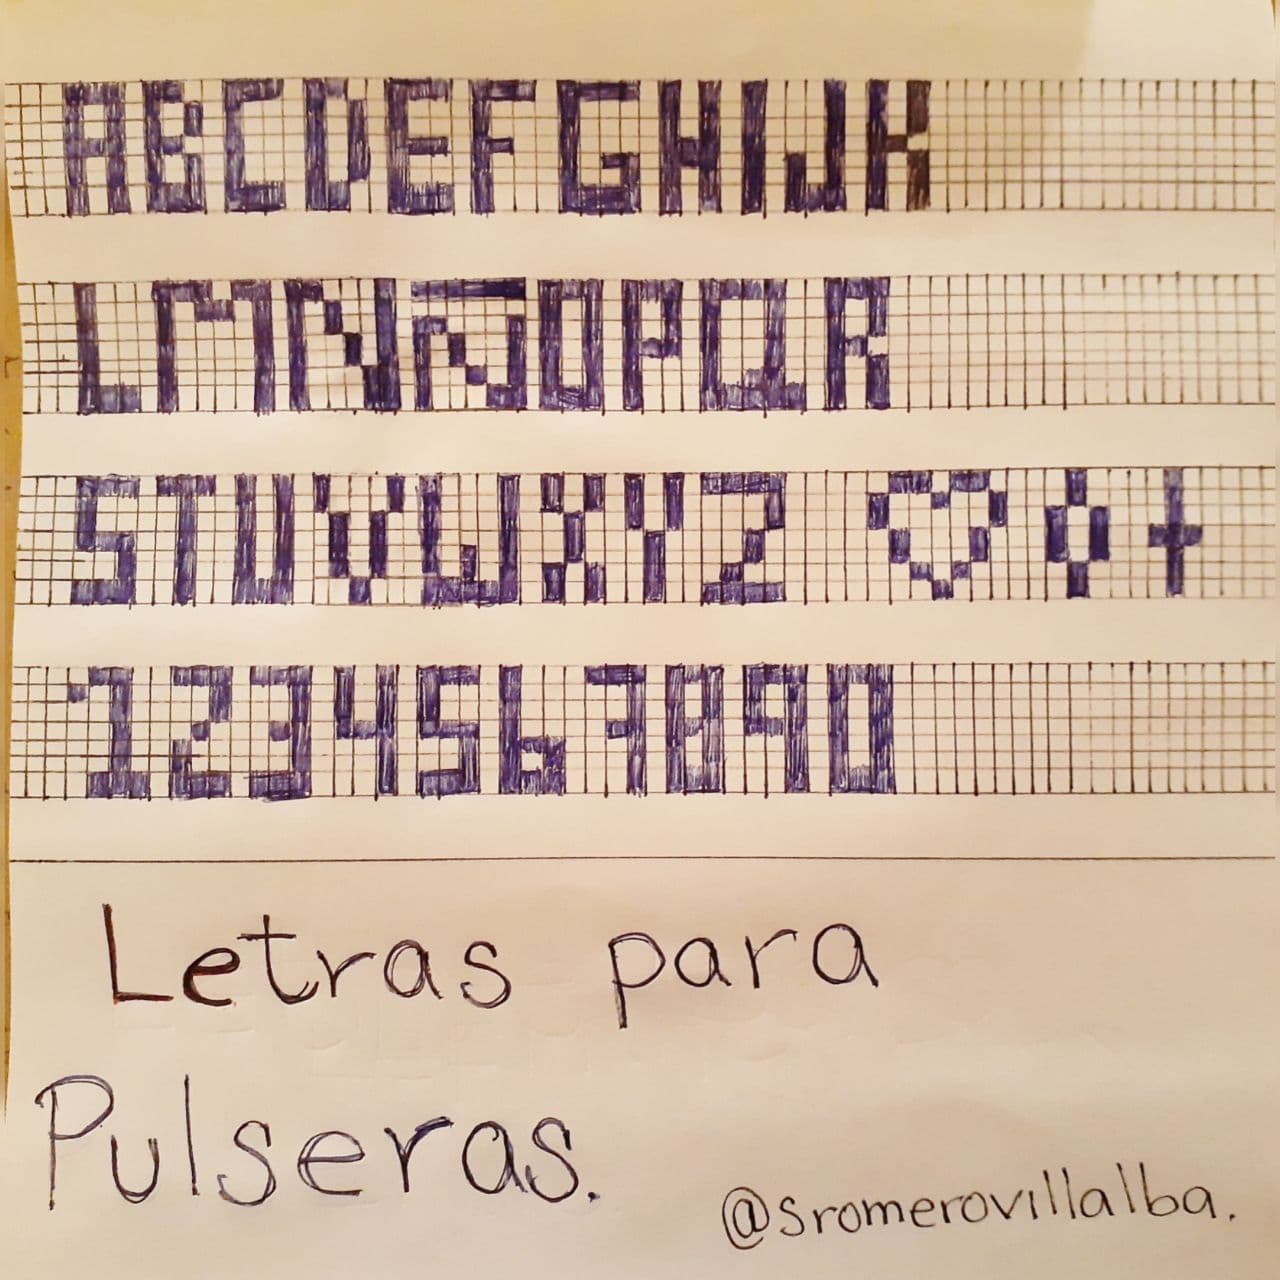 ABCDEFGHIJK
LMNÑOPQR
STUVWXYZ
1234567890
Letras para
Pulseras.
@sromerovillalba.